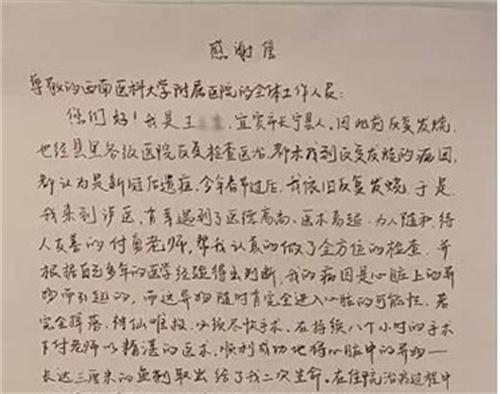 感谢信
尊敬的西南医科大学附属医院的全体工作人员:
你们好!我是王 ,宜宾市长宁县人,因此前反复发烧,
也经县里各级医院反复检查医治,都未找到反复发烧的病因,
都认为是新冠后遗症,今年春节过后,我依旧反复发烧,于是,
我来到泸医,有幸遇到了医德高尚、医术高超、为人随和、待
人友善的付勇老师,帮我认真的做了全方位的检查,并
根据自己多年的医学经验得出判断,我的病因是心脏上的异
物而引起的,而这异物随时有完全进入心脏的可能性,若
完全降落,神仙难救,必须尽快手术,在持续八个小时的手术
下付老师以精湛的医术,顺利成功地将心脏中的异物一
长达三厘米的鱼刺取出给了我二次生命,在住院治病过程中